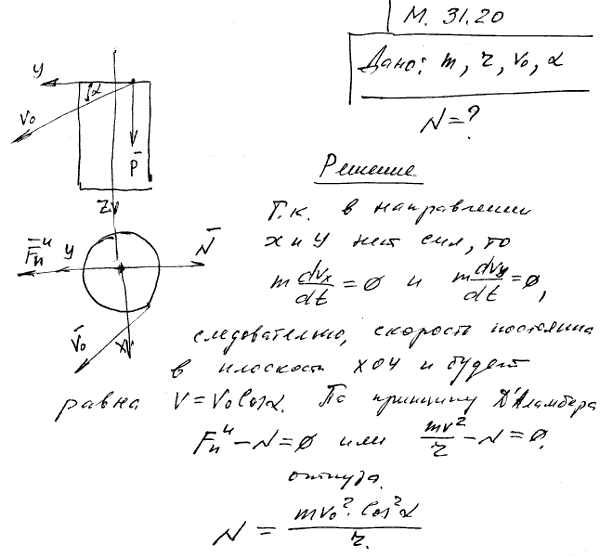 М. 31.20
Дано: m, r, v₀, α
N = ?
Решение
Т.к. в направлении
x и y нет сил, то
m dvₓ/dt = 0 и m dv_y/dt = 0,
следовательно, скорость постоянна
в плоскость XOY и будет
равна V = V₀Cosα. По принципу Д'Аламбера
Fₙᵘ - N = 0 или mv²/r - N = 0.
откуда
N = mv₀²·Cos²α/r.
y
α
v₀
P̄
Z
F̄ₙᵘ
y
N̄
V̄₀
X